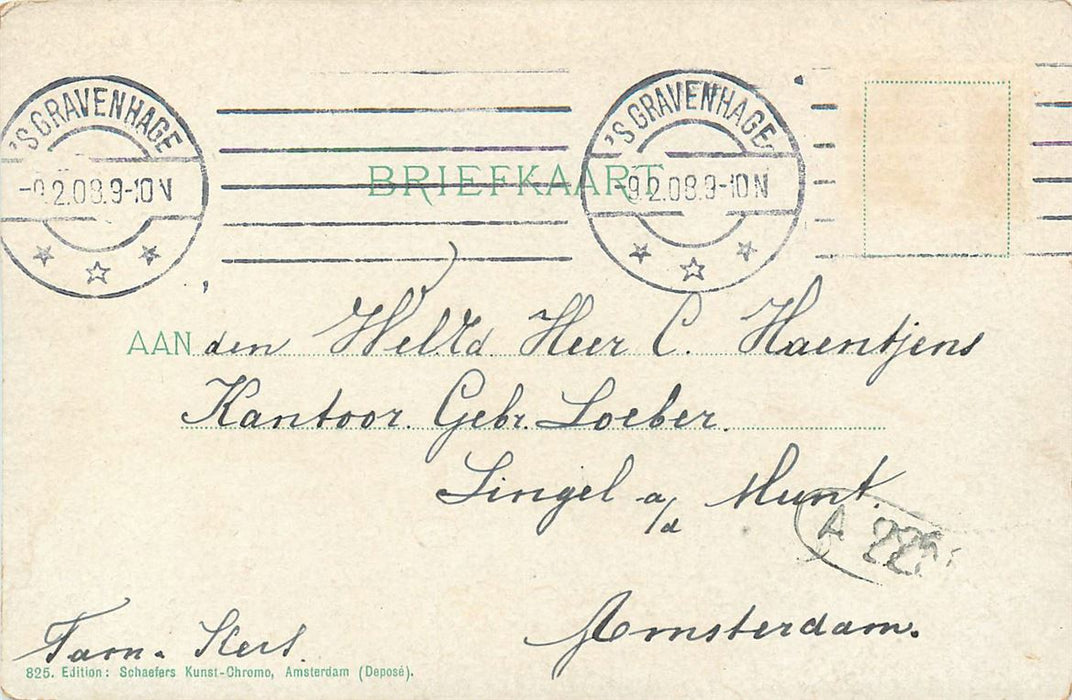 'S GRAVENHAGE
-9.2.08.9-10N
'S GRAVENHAGE
-9.2.08.9-10N
BRIEFKAART
AAN den Heer C. Haentjens
Kantoor Gebr. Loeber.
Singel a/d Munt.
A 22
Amsterdam.
Fam.
825. Edition: Schaefers Kunst-Chromo, Amsterdam (Deposé).